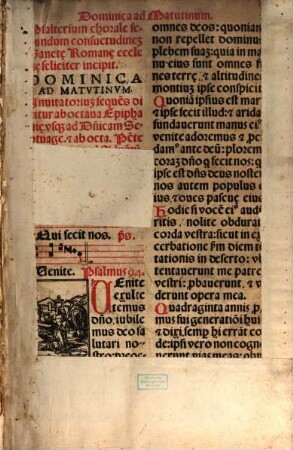 Dominica ad Matutinum.
Psalterium chorale se-
cundum consuetudinez
Sancte Romane eccle
sie feliciter incipit.
DOMINICA
AD MATVTINVM.
Inuitatoriuz sequēs di
citur ab octaua Epipha
nie, vsq; ad Dñicam Se
ptuage. & ab octa. Pēte
Qui fecit nos. ps.
Uenite. Psalmus 94.
UEnite
exulte
temus
dño, iubile
mus deo sa
lutari no-
stro: preoc-
omnes deos: quonian
non repellet dominu
plebem suaz: quia in ma
nu eius sunt omnes
nes terre, & altitudine
montiuz ipse conspicit
Quoniā ipsius est mar
& ipse fecit illud: & arida
fundauerunt manus ei
venite adoremus & pr
dam⁹ ante deū: plorem
coraz dño q̄ fecit nos: q
ipse est dñs deus noster
nos autem populus e
ius, & oues pascue eius
Hodie si vocē ei⁹ aud
ritis, nolite obdurar
corda vestra: sicut in ex
cerbatione ꝑm diem te
tationis in deserto: vb
tentauerunt me patre
vestri: ꝓbauerunt, & v
derunt opera mea.
Quadraginta annis p
mus fui generatiōi hui
& dixi, semp hi errāt co
de: ipsi vero non cogno
uerunt vias meas: qb